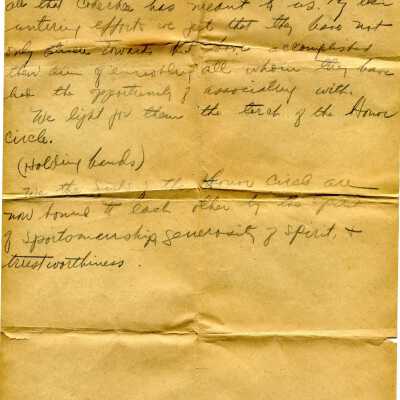 all that has meant to us. By their
untiring efforts we feel that they have not
only towards the above accomplished
their aim of ennobling all whom they have
had the opportunity of associating with.
We light for them the torch of the Honor
Circle.
(Holding hands)
We the girls of the Honor Circle are
now bound to each other by the spirit
of sportsmanship, generosity of spirit, +
trustworthiness.